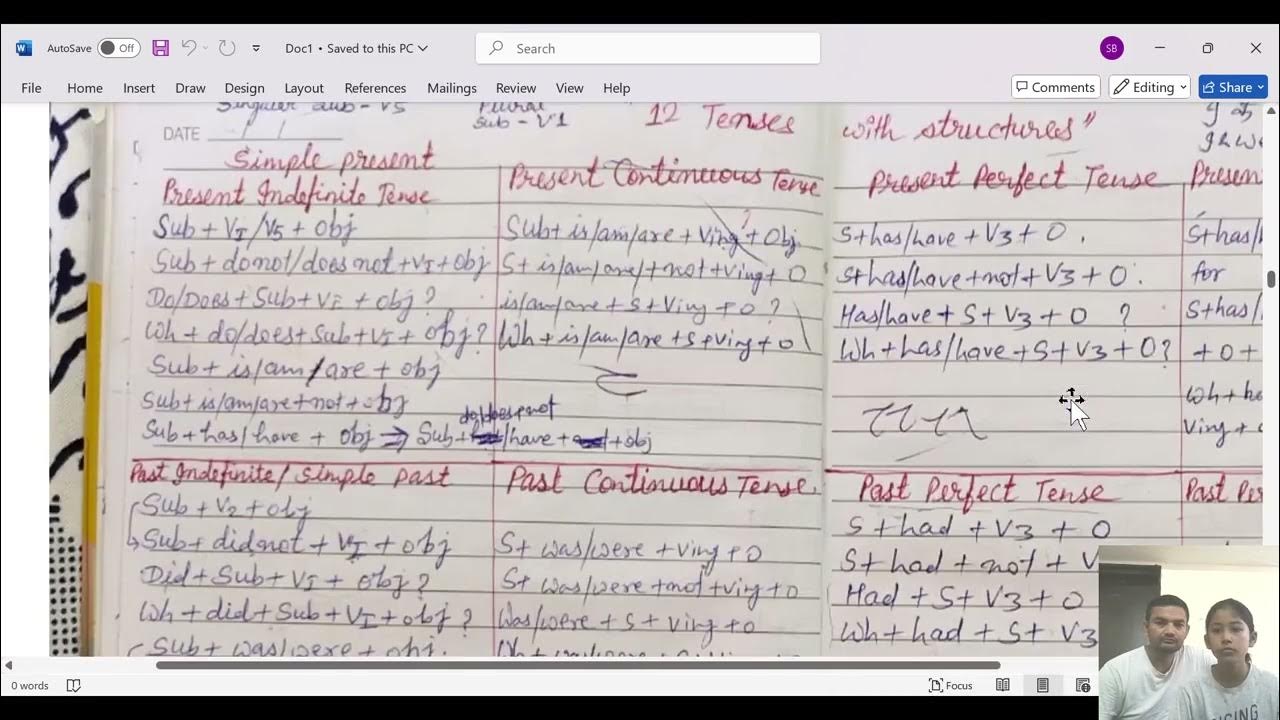 AutoSave Off Doc1 • Saved to this PC Search SB
File Home Insert Draw Design Layout References Mailings Review View Help Comments Editing Share
Singular sub - V5
Plural
Sub - V1
12 Tenses
with structures"
DATE / /
Simple present
Present Indefinite Tense
Sub + VI/V5 + Obj
Sub + do not/does not + VI + obj
Do/Does + Sub + VI + obj ?
Wh + do/does + Sub + VI + obj ?
Sub + is/am/are + obj
Sub + is/am/are + not + obj
Sub + has/have + obj ⇒ Sub + /have + + obj
do/does + not
Present Continuous Tense
Sub + is/am/are + Ving + Obj.
S + is/am/are/ + not + Ving + O
is/am/are + S + Ving + O ?
Wh + is/am/are + S + Ving + O
Present Perfect Tense
S + has/have + V3 + O .
S + has/have + not + V3 + O .
Has/have + S + V3 + O ?
Wh + has/have + S + V3 + O ?
Presen
S + has/
for
S + has/
+ O +
Wh + ha
Ving +
Past Indefinite / Simple past
Sub + V2 + obj
Sub + did not + VI + obj
Did + Sub + VI + obj ?
Wh + did + Sub + VI + obj ?
Sub + was/were + obj.
Past Continuous Tense.
S + was/were + Ving + O
S + was/were + not + Ving + O
Was/were + S + Ving + O
Past Perfect Tense
S + had + V3 + O
S + had + not + V
Had + S + V3 + O
Wh + had + S + V3
Past Per
0 words Focus